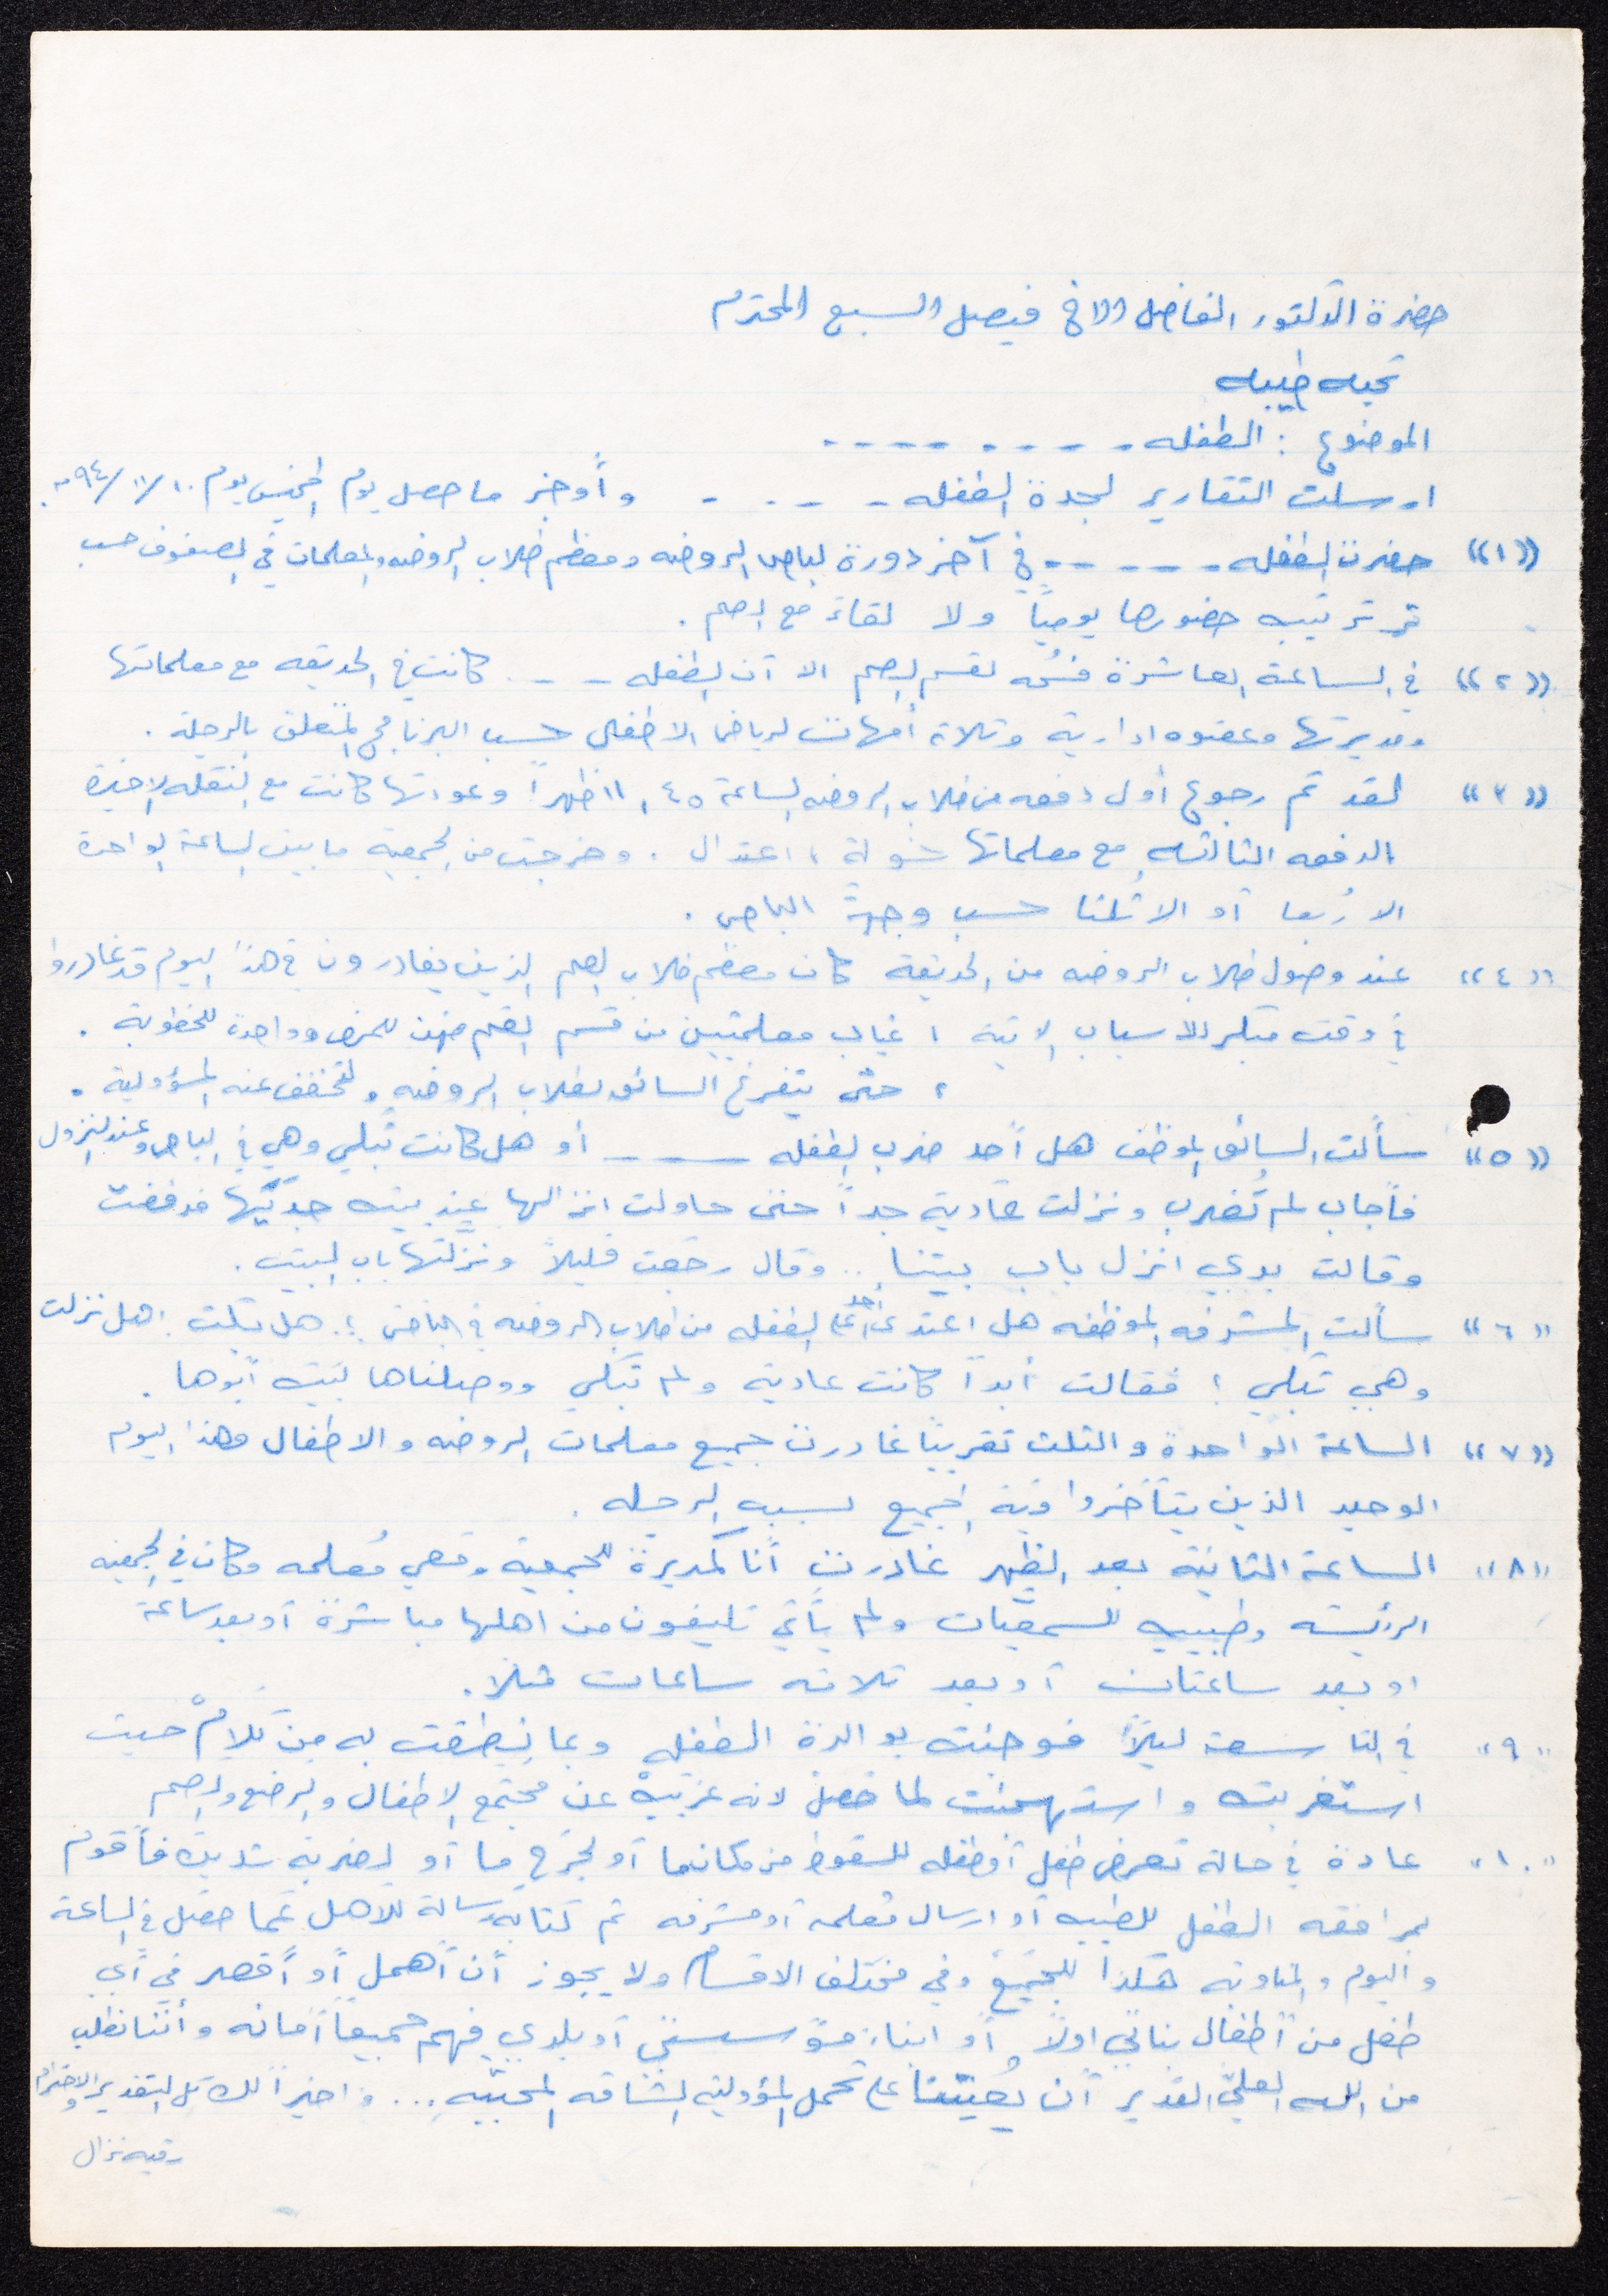 حضرة الدكتور الفاضل الاخ فيصل السبع المحترم
تحيه طيبه
الموضوع : الطفله - - - - - - -
ارسلت التقارير لجدة الطفله - - - - وأوجز ما حصل يوم الخميس يوم ١٠/١١/٩٤م.
«١» حضرت الطفله - - - - - في آخر دورة لباص الروضه ومعظم طلاب الروضه والمعلمات في الصفوف حسب
ترتيب حضورها يومياً ولا لقاء مع الصم .
«٢» في الساعة العاشرة فسُحه لقسم الصم الا أن الطفله - - . كانت في الحديقه مع معلماتها
ومديرتها وعضوه ادارية وثلاثه أمهات لرياض الاطفال حسب البرنامج المتعلق بالرحلة .
«٣» لقد تم رجوع أول دفعه من طلاب الروضه الساعة ١١،٤٥ ظهراً وعودتها كانت مع النقله الاخيرة
الدفعه الثالثه مع معلماتها خولة ، اعتدال . وخرجت من الجمعية ما بين الساعة الواحدة
الا رُبعا أو الا ثُلثا حسب وجهة الباص .
«٤» عند وصول طلاب الروضه من الحديقة كان معظم طلاب الصم الذين يغادرون في هذا اليوم قد غادروا
في وقت مبكر للاسباب الاتية ١ غياب معلمتين من قسم الصم منهن للمرض وواحدة للخطوبة .
٢ حتى يتفرغ السائق لطلاب الروضه ولتخفف عنه المسؤولية .
«٥» سألت السائق الموظف هل أحد ضرب الطفله ـــــ أو هل كانت تبكي وهي في الباص وعند النزول
فأجاب لم تُضرب ونزلت عادية جداً حتى حاولت انزالها عند بيت جدتها فرفضت
وقالت بدي انزل باب بيتنا .. وقال رجعت قليلاً ونزّلتها باب البيت .
«٦» سألت المشرفه الموظفه هل اعتدى أحد على الطفله من طلاب الروضه في الباص ؟. هل بكت . هل نزلت
وهي تبكي ؟ فقالت أبداً كانت عادية ولم تبكي ووصلناها لبيت أبوها .
«٧» الساعة الواحدة والثلث تقريباً غادرت جميع معلمات الروضه والاطفال وهذا اليوم
الوحيد الذين يتأخروا فيه الجميع لسبب الرحله .
«٨» الساعة الثانية بعد الظهر غادرت أنا كمديرة للجمعية ومعي مُعلمه وكان في الجمعيه
الرئيسه وطبيبه للسمعيات ولم يأتي تليفون من اهلها مباشرة أو بعد ساعة
او بعد ساعتان أو بعد ثلاثه ساعات مثلاً .
«٩» في التاسعة ليلاً فوجئت بوالدة الطفله وبما نطقت به من كلام حيث
استغربت و لما حصل لانه غريب عن مجتمع الاطفال والرضع والصم
«١٠» عادة في حالة تعرض طفل أو طفله للسقوط من مكانهما أو لجرح ما أو لضربه شديده فأقوم
بمرافقه الطفل للطبيب أو ارسال مُعلمه أو مشرفه ثم كتابه رسالة للاهل عما حصل في الساعة
واليوم والمناوبه هكذا للجميع وفي مختلف الاقسام ولا يجوز أن أهمل أو أقصر في أي
طفل من أطفال بناتي اولاً أو ابناء مؤسستي أو بلدي فهم جميعاً أمانه وأننا نطلب
من الله العليّ القدير أن يُعيننا على تحمل المسؤولية الشاقه المحببّه ... واخيراً لك كل التقدير والاحترام
رقيه نزال